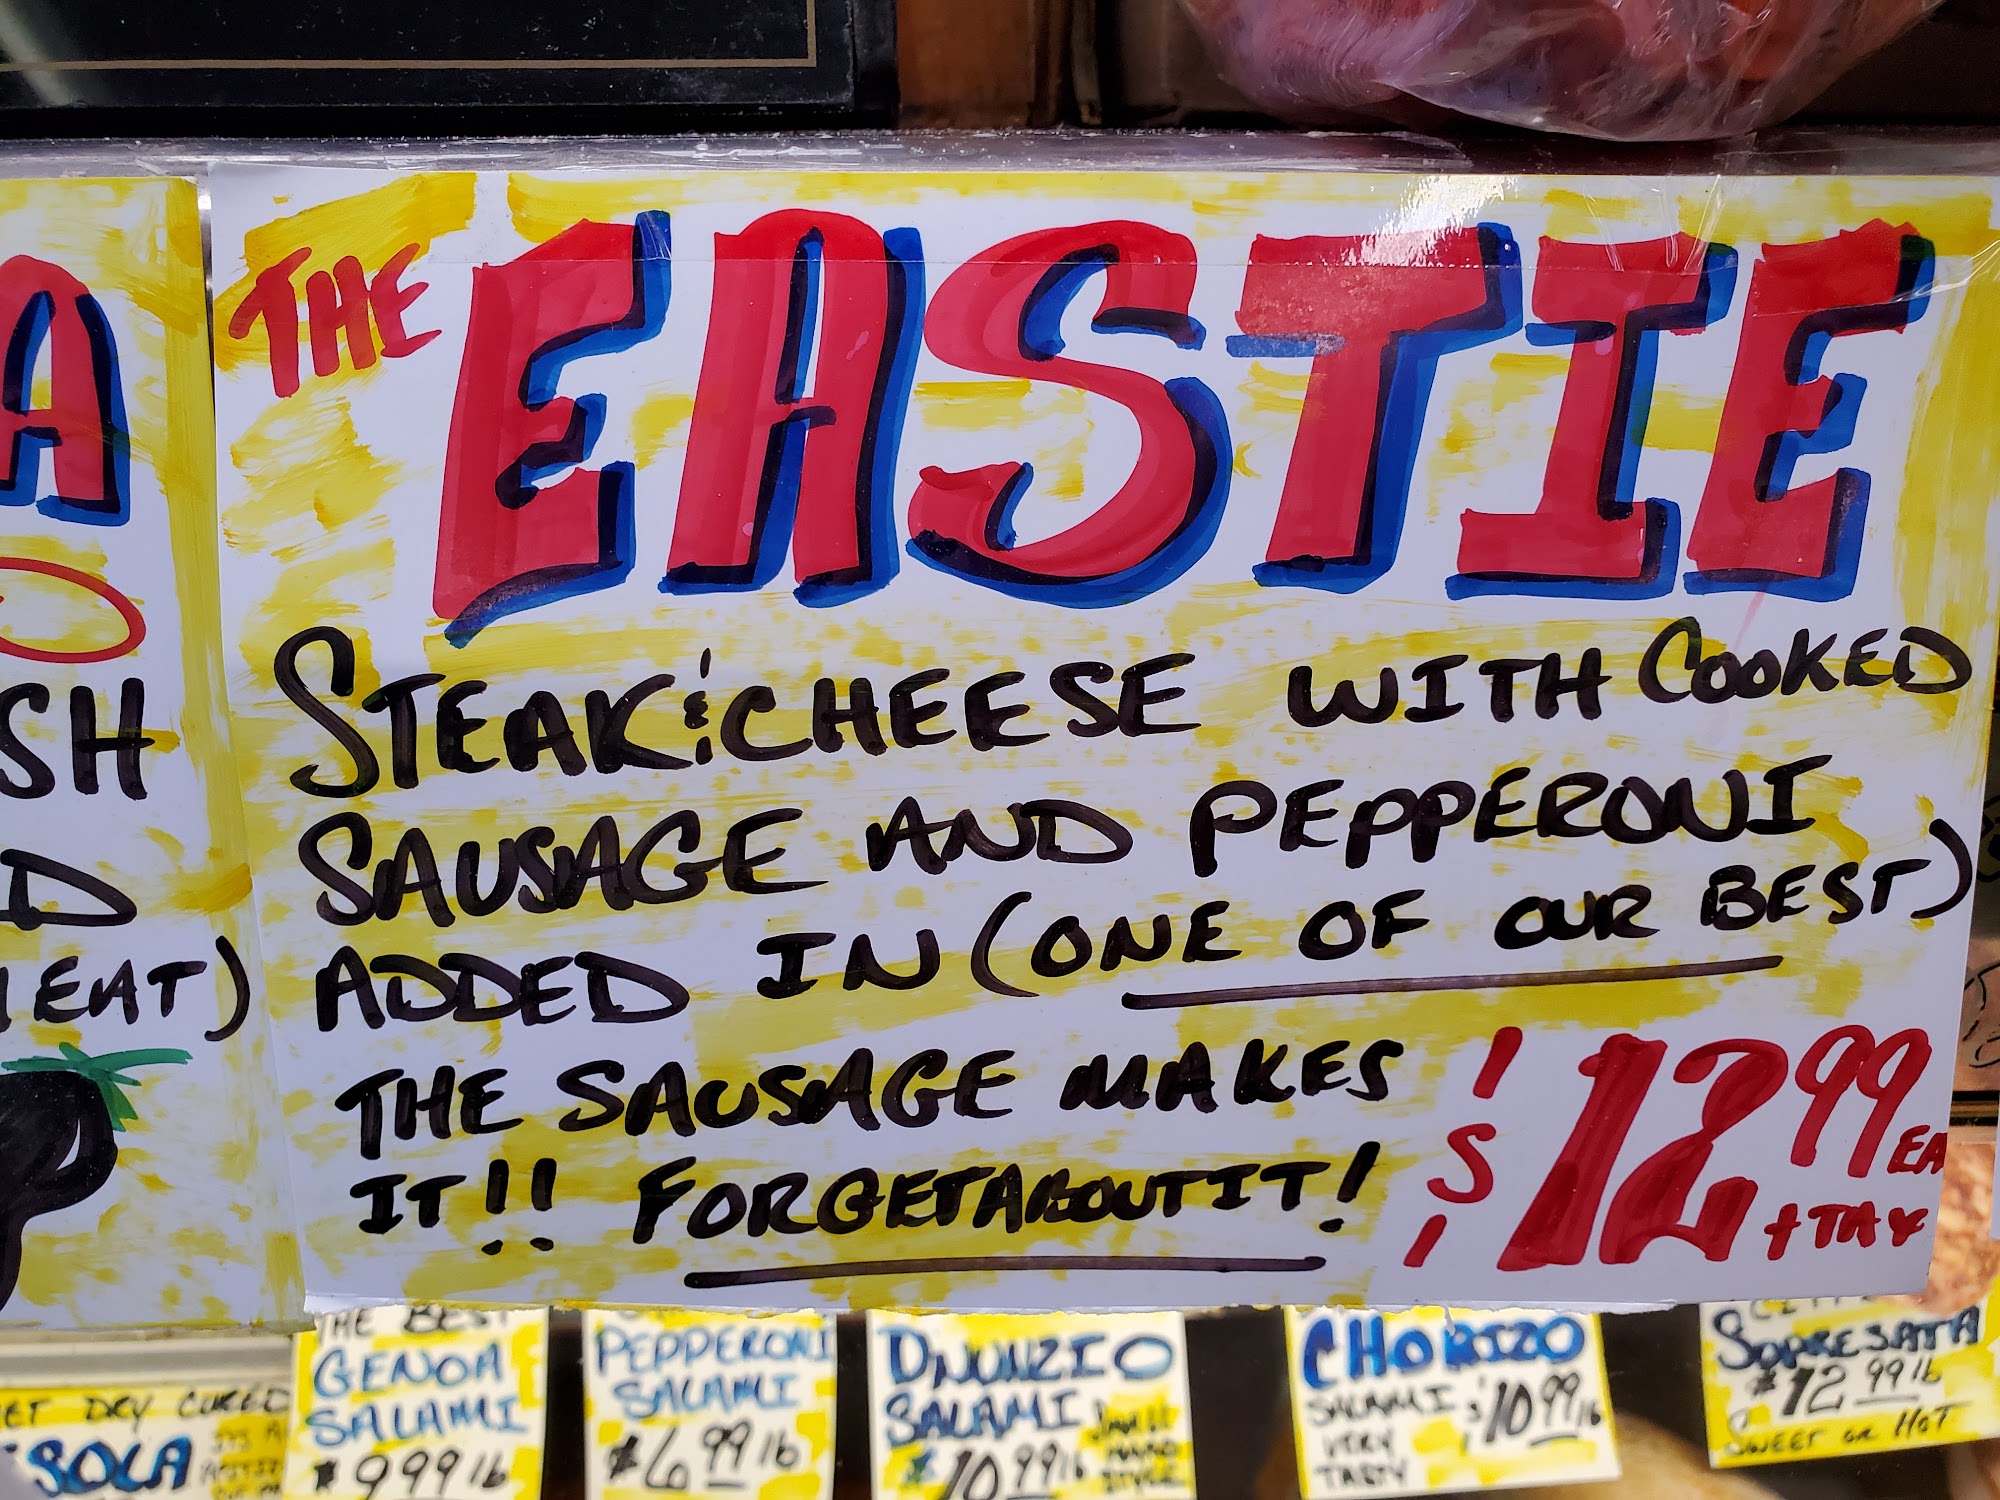 THE EASTIE
STEAK & CHEESE WITH COOKED
SAUSAGE AND PEPPERONI
ADDED IN (ONE OF OUR BEST)
THE SAUSAGE MAKES
IT!! FORGETABOUTIT!
$12.99 EA
+ TAX
A
SH
D
EAT)
THE BEST
GENOA
SALAMI
$9.99 lb
PEPPERONI
SALAMI
$6.99 lb
DNUNZIO
SALAMI
$10.99 lb
CHORIZO
SALAMI
VERY
TASTY
$10.99 lb
SOPRESATTA
$12.99 lb
SWEET OR HOT
DRY CURED
SOLA